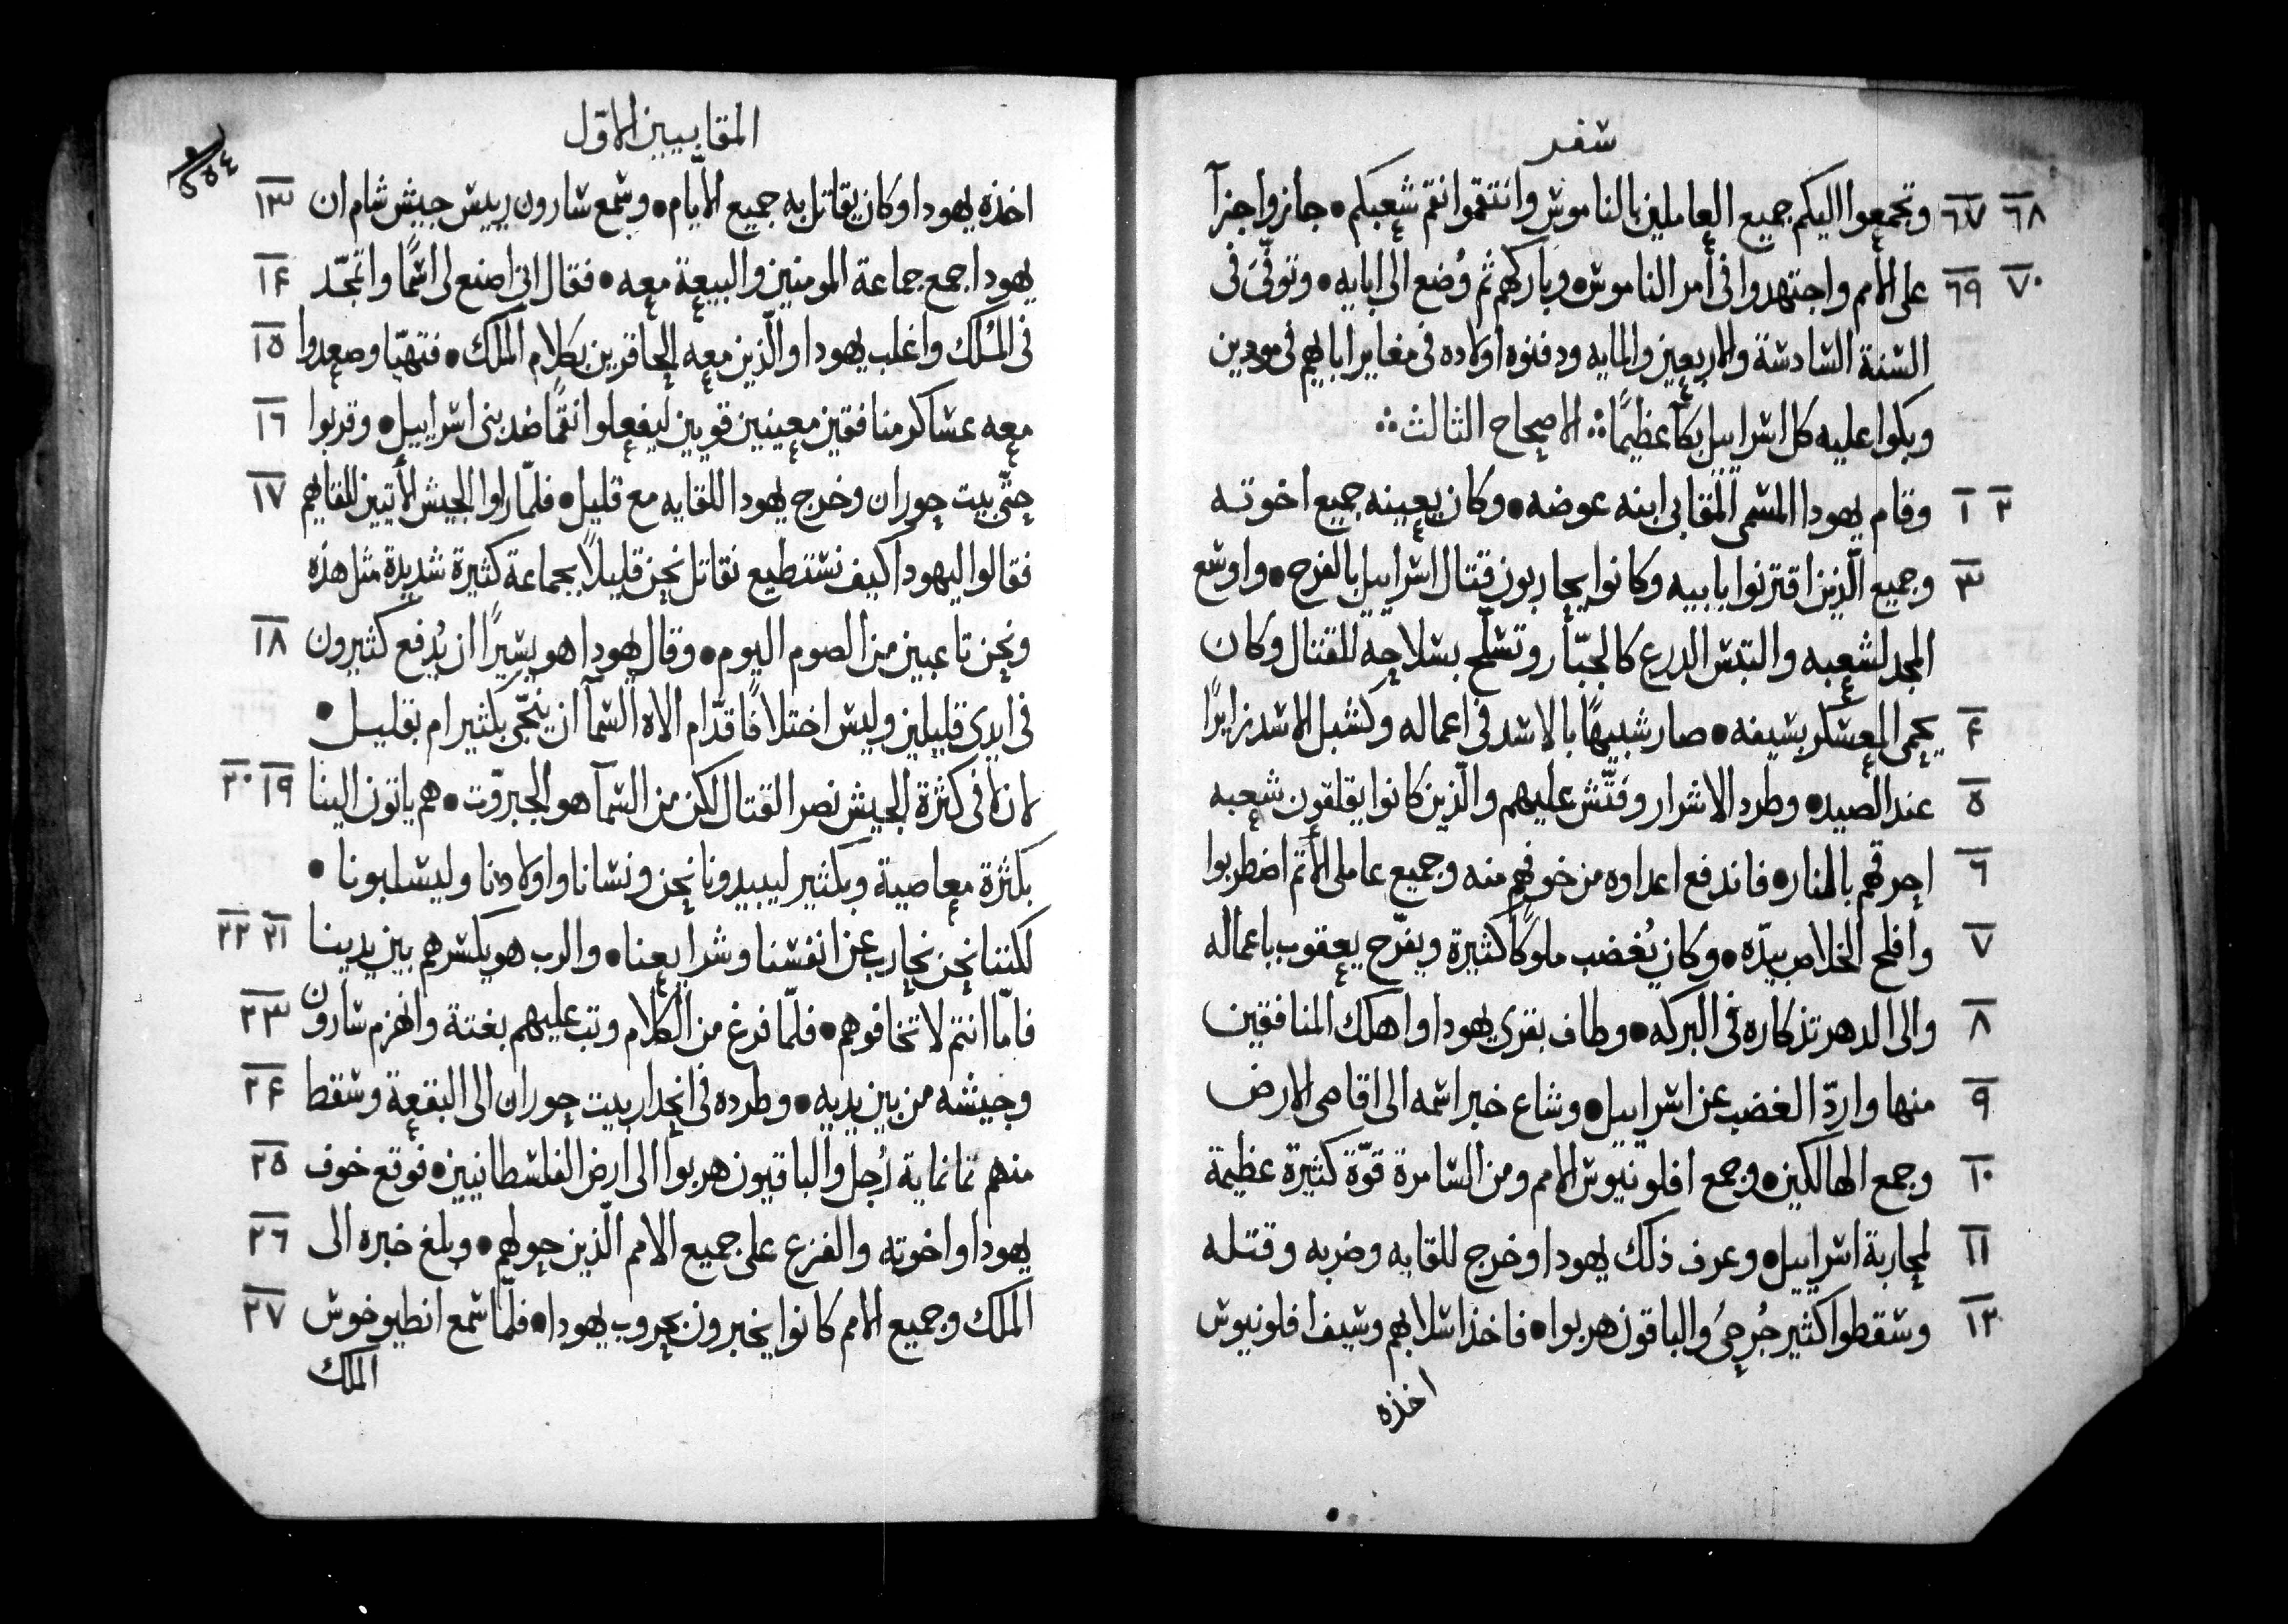 سفر
٦٧ ٦٨ وتجمعوا اليكم جميع العاملين بالناموس وانتقموا نقم شعبكم • جازوا جزآ
٦٩ ٧٠ على الامم واجتهدوا فى امر الناموس • وباركهم ثم وُضع الى ابايه • وتوفّى فى
السنة السادسة والاربعين والمايه ودفنوه اولاده فى مغاير اباهم فى مودين
وبكوا عليه كل اسراييل بكآ عظيمًا ܀ الاصحاح الثالث ܀
١ ٢ وقام يهودا المسمى المقابى ابنه عوضه • وكان يعينه جميع اخوته
٣ وجميع الّذين اقترنوا بابيه وكانوا يحاربون قتال اسراييل بالفرح • واوسع
المجد لشعبه والتبس الدرع كالجبّار وتسلّح بسلاحه للقتال وكان
٤ يحمى المعسكر بسيفه • صار شبيهًا بالاسد فى اعماله وكشبل الاسد زايرًا
٥ عند الصيد • وطرد الاشرار وفتّش عليهم والّذين كانوا يقلقون شعبه
٦ احرقهم بالنار • فاندفع اعداوه من خوفهم منه وجميع عاملى الأثم اضطربوا
٧ وافلح الخلاص بيدّه • وكان يُغضب ملوكًا كثيرة ويفرّح يعقوب باعماله
٨ والى الدهر تذكاره فى البركه • وطاف بقرى يهودا واهلك المنافقين
٩ منها واردّ الغضب عن اسراييل • وشاع خبر اسمه الى اقاصى الارض
١٠ وجمع الهالكين • وجمع افلونيوس الامم ومن السامرة قوّة كثيرة عظيمة
١١ لمحاربة اسراييل • وعرف ذلك يهودا وخرج للقايه وضربه وقتله
١٢ وسقطوا كثير جُرحىَ والباقون هربوا • فاخذ اسلابهم وسيف افلونيوس
اخذه
المقابيين الاوّل
٥٥٤
١٣ اخذه يهودا وكان يقاتل به جميع الأيّام • وسمع سارون رييس جيش شام ان
١٤ يهودا جمع جماعة المومنين والبيعة معه • فقال انى اصنع لى اسمًا واتمجّد
١٥ فى المُلك واغلب يهودا والّذين معه الحاقرين بكلام الملك • فتهيّا وصعدوا
١٦ معه عساكر منافقين معينين قويين ليفعلوا نقمًا ضد بنى اسراييل • وقربوا
١٧ حتّى بيت حوران وخرج يهودا للقايه مع قليل • فلمّا راوا الجيش الأتيين للقاهم
فقالوا ليهودا كيف نستطيع نقاتل نحن قليلاً بجماعة كثيرة شديدة مثل هذه
١٨ ونحن تاعبين من الصوم اليوم • وقال يهودا هو يسيرًا ان يُدفع كثيرون
فى ايدى قليلين وليس اختلافًا قدّام الاه السمآ ان ينجّى بكثير ام بقليل •
١٩ ٢٠ لان لا فى كثرة الجيش نصر القتال لكن من السمآ هو الجبروّت • هم ياتون الينا
بكثرة معاصية وبكثير ليبيدونا نحن ونسانا واولادنا وليسلبونا •
٢١ ٢٢ لكننا نحن نحارب عن انفسنا وشرايعنا • والرب هو يكسرهم بين يدينا
٢٣ فامّا انتم لا تخافوهم • فلمّا فرغ من الكلام وتب عليهم بغتة وانهزم سارون
٢٤ وجيشه من بين يديه • وطرده فى انحدار بيت حوران الى البقعة وسقط
٢٥ منهم تمانماية رُجل والباقيون هربوا الى ارض الفلسطانيين • فوقع خوف
٢٦ يهودا واخوته والفزع على جميع الامم الّذين حولهم • وبلغ خبره الى
٢٧ الملك وجميع الامم كانوا يخبرون بحروب يهودا • فلمّا سمع انطيوخوس
الملك